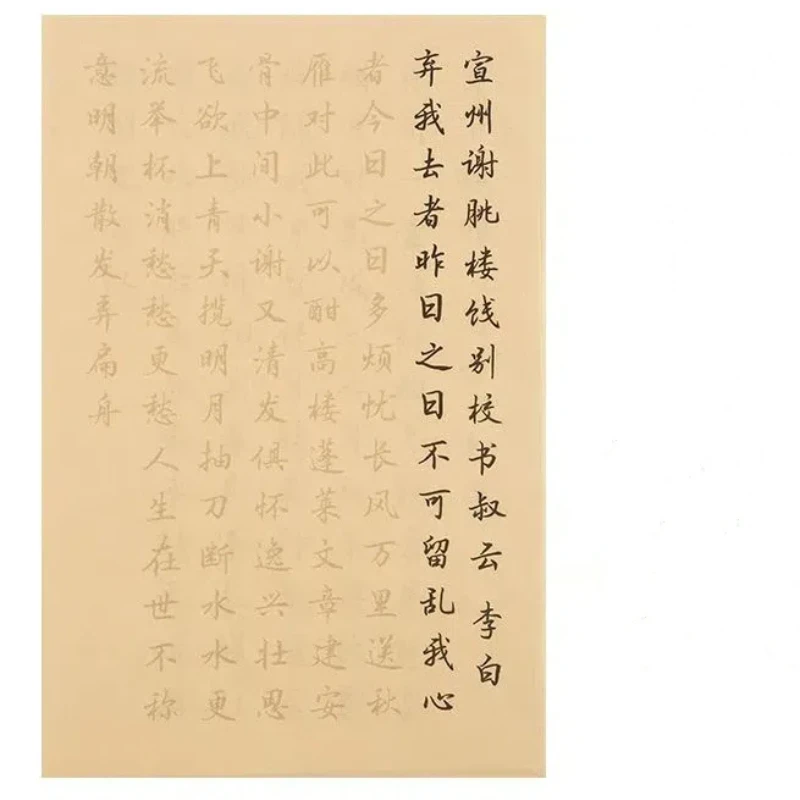 宣州谢朓楼饯别校书叔云 李白
弃我去者昨日之日不可留乱我心
者今日之日多烦忧长风万里送秋
雁对此可以酣高楼蓬莱文章建安
骨中间小谢又清发俱怀逸兴壮思
飞欲上青天揽明月抽刀断水水更
流举杯消愁愁更愁人生在世不称
意明朝散发弄扁舟